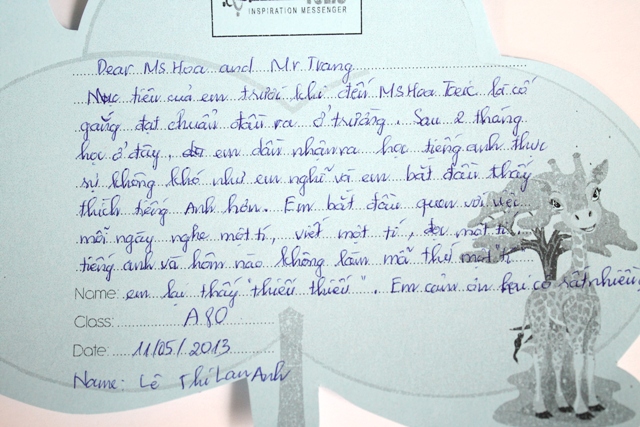 INSPIRATION MESSENGER
Dear Ms.Hoa and Mr.Trang
Mục tiêu của em trước khi đến MS Hoa Toeic là cố
gắng đạt chuẩn đầu ra ở trường. Sau 2 tháng
học ở đây, em dần nhận ra học tiếng anh thực
sự không khó như em nghĩ và em bắt đầu thấy
thích tiếng Anh hơn. Em bắt đầu quen với việc
mỗi ngày nghe một tí, viết một tí, đọc một tí
tiếng anh và hôm nào không làm mấy thứ một tí
Name: em lại thấy "thiếu thiếu". Em cảm ơn cô rất nhiều
Class: A80
Date: 11/05/2013
Name: Lê Thị Lan Anh